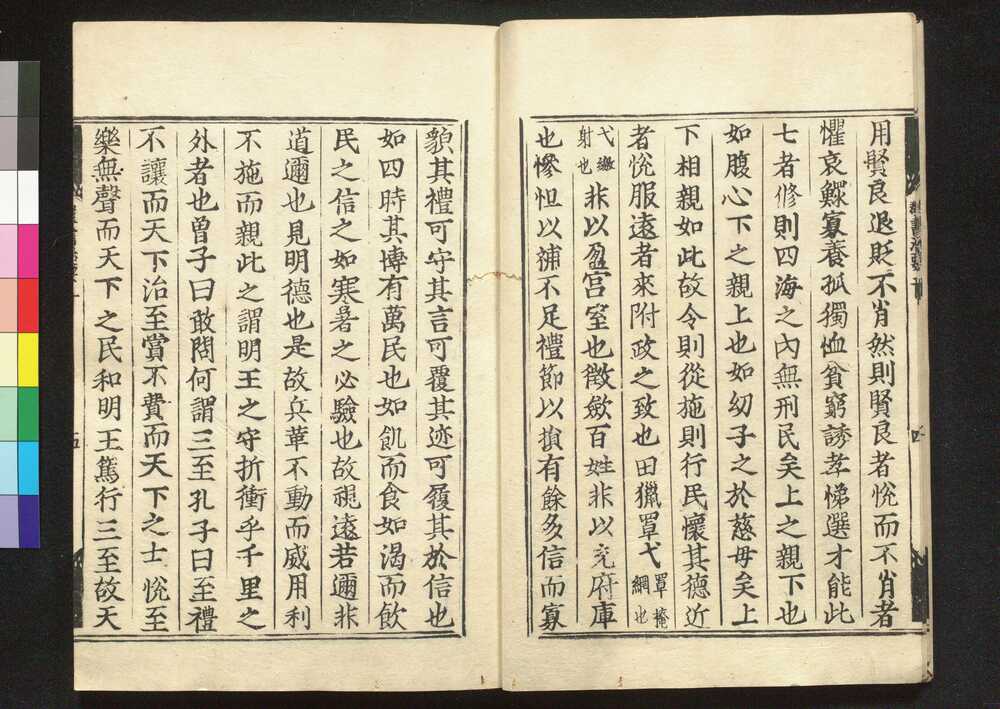 用賢良退貶不肖然則賢良者悅而不肖者
懼哀鰥寡養孤獨恤貧窮誘孝悌選才能此
七者修則四海之內無刑民矣上之親下也
如腹心下之親上也如幼子之於慈母矣上
下相親如此故令則從施則行民懷其德近
者悅服遠者來附政之致也田獵罩弋罩掩網也
弋繳射也非以盈宮室也徵斂百姓非以充府庫
也慘怛以補不足禮節以損有餘多信而寡
貌其禮可守其言可覆其迹可履其於信也
如四時其博有萬民也如飢而食如渴而飲
民之信之如寒暑之必驗也故視遠若邇非
道邇也見明德也是故兵革不動而威用利
不施而親此之謂明王之守折衝乎千里之
外者也曾子曰敢問何謂三至孔子曰至禮
不讓而天下治至賞不費而天下之士悅至
樂無聲而天下之民和明王篤行三至故天
五